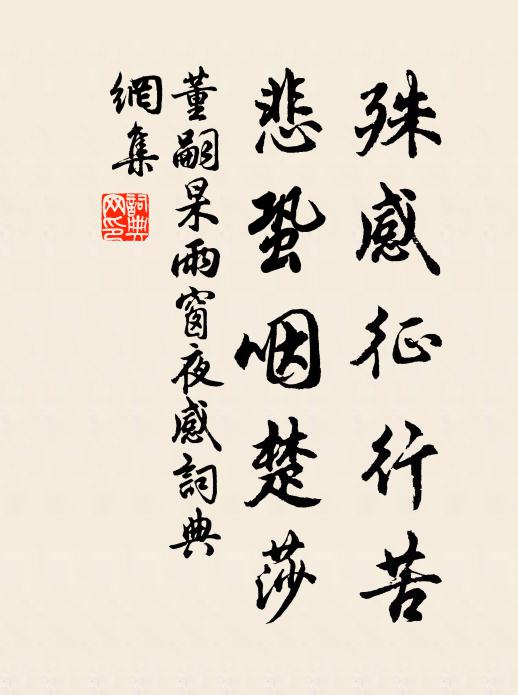 殊感征行苦
悲蛩咽楚莎
董嗣杲雨窗夜感詞典
網集
詞典網印